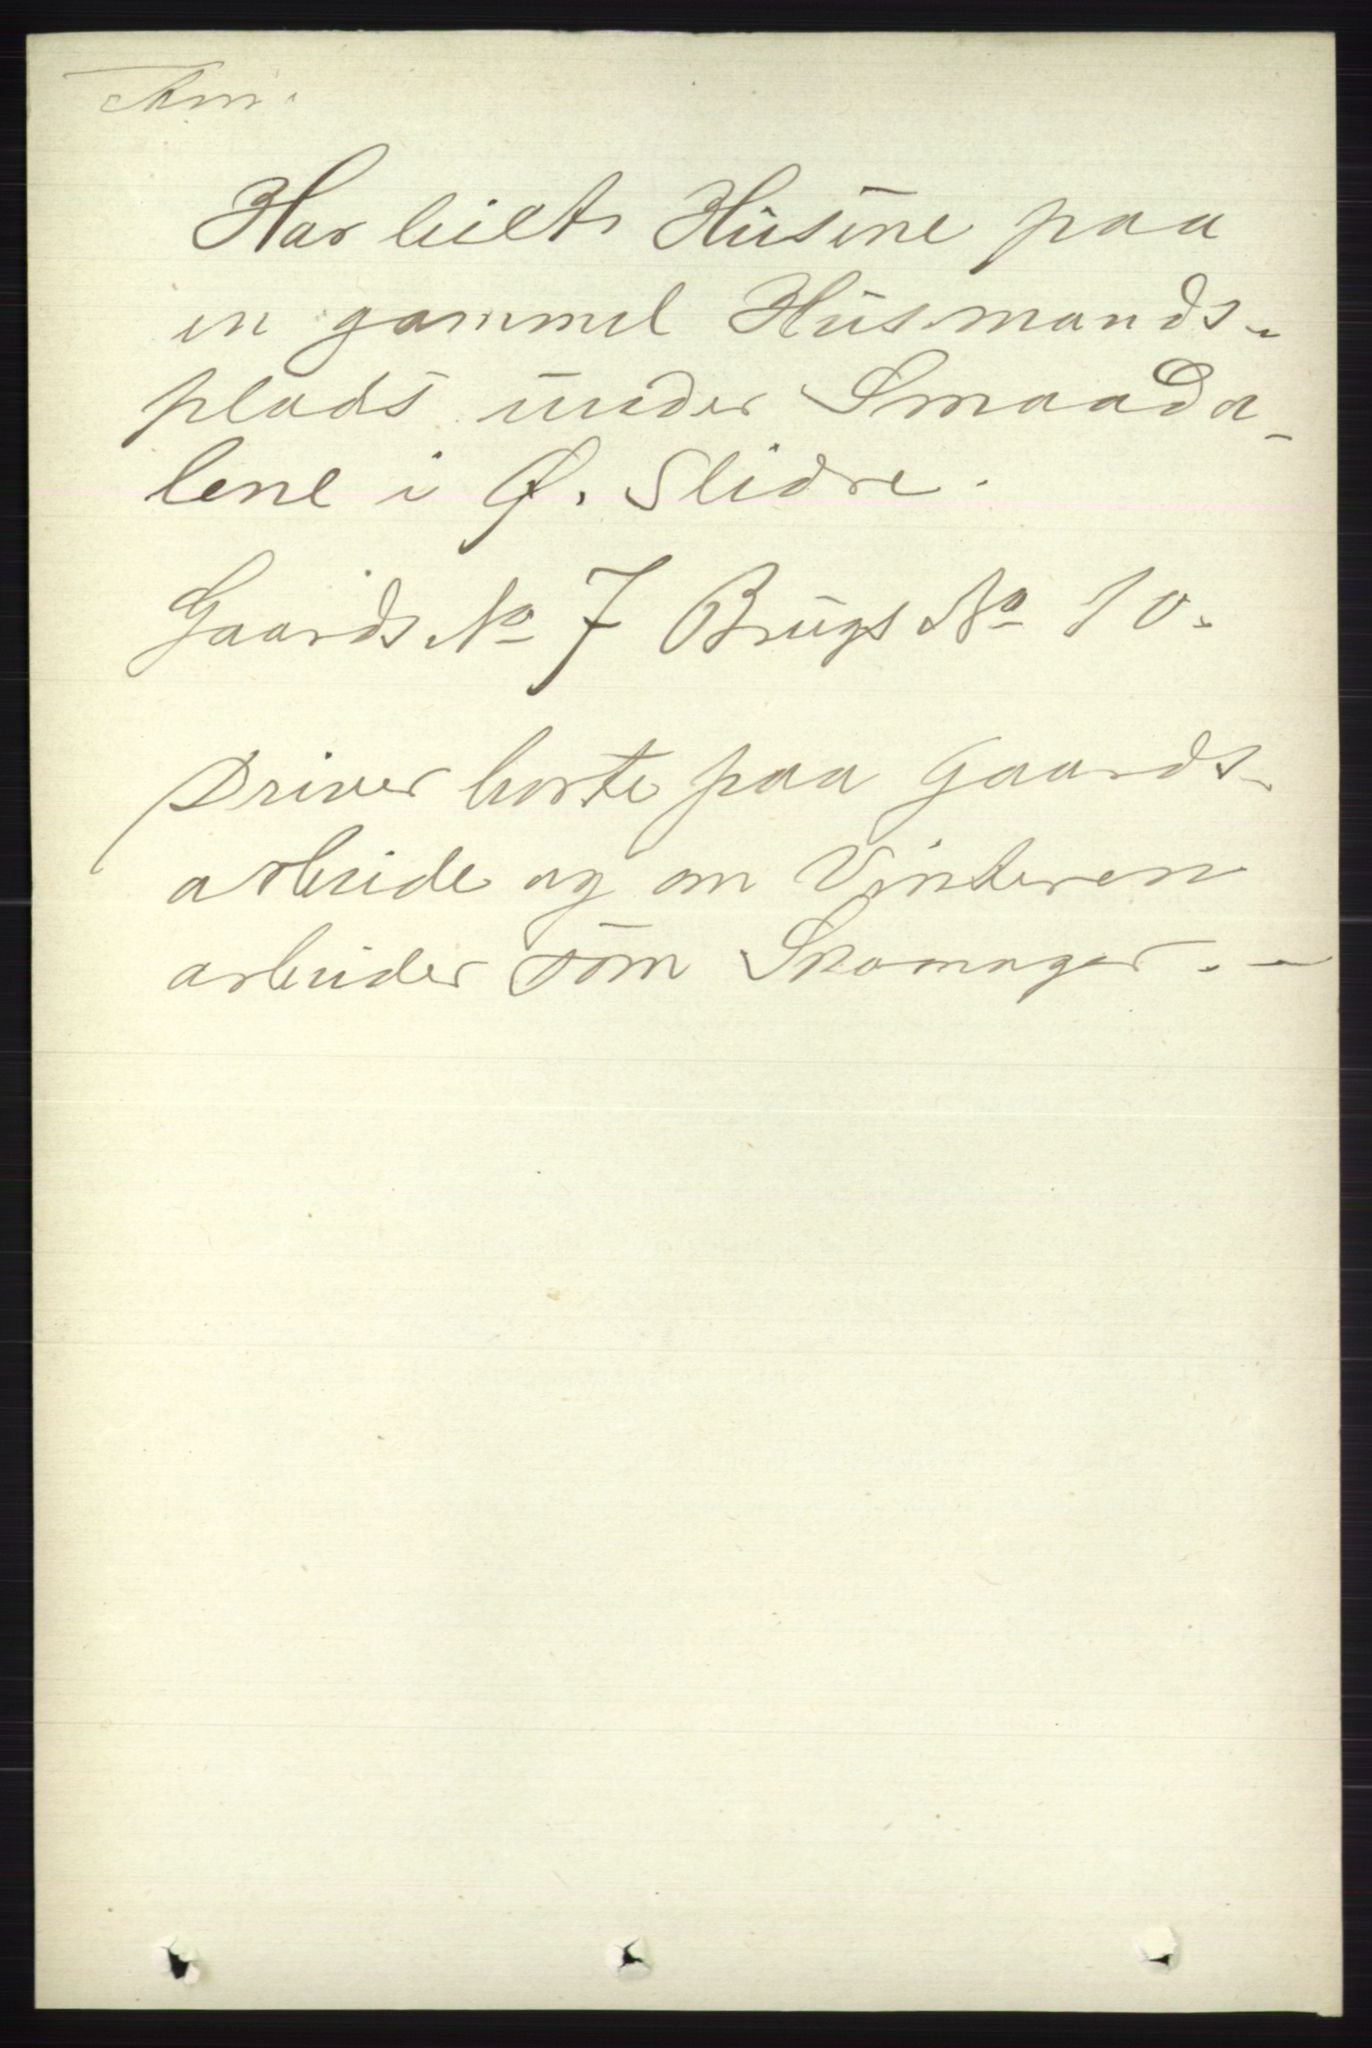 Anm.
Har leiet Husene paa
en gammel Husmands-
plads under Smaada-
lene i Ø. Slidre.
Gaards No 7 Brugs No 10.
Driver borte paa Gaards-
arbeide og om Vinteren
arbeider som Skomager. -